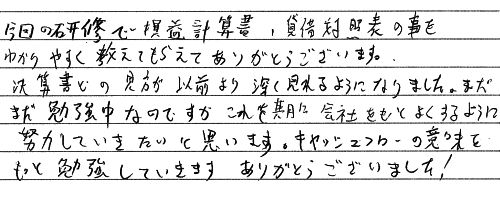 今回の研修で損益計算書、貸借対照表の事を
わかりやすく教えてもらえてありがとうございます。
決算書との見方が以前より深く見れるようになりました。まだ
まだ勉強中なのですがこれを期に会社をもとよくするように
努力していきたいと思います。キャッシュフローの意味を
もっと勉強していきます ありがとうございました!